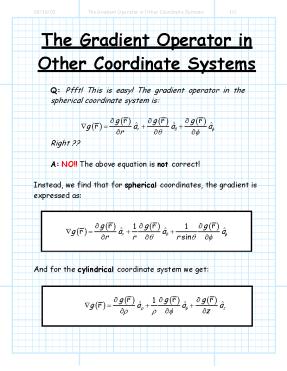 The Gradient Operator in Other Coordinate Systems
1/1
The Gradient Operator in
Other Coordinate Systems
Q: Pfft! This is easy! The gradient operator in the
spherical coordinate system is:
∇g(r̄) = ∂g(r̄)/∂r â_r + ∂g(r̄)/∂θ â_θ + ∂g(r̄)/∂φ â_φ
Right ??
A: NO!! The above equation is not correct!
Instead, we find that for spherical coordinates, the gradient is
expressed as:
∇g(r̄) = ∂g(r̄)/∂r â_r + 1/r ∂g(r̄)/∂θ â_θ + 1/(r sinθ) ∂g(r̄)/∂φ â_φ
And for the cylindrical coordinate system we get:
∇g(r̄) = ∂g(r̄)/∂ρ â_ρ + 1/ρ ∂g(r̄)/∂φ â_φ + ∂g(r̄)/∂z â_z